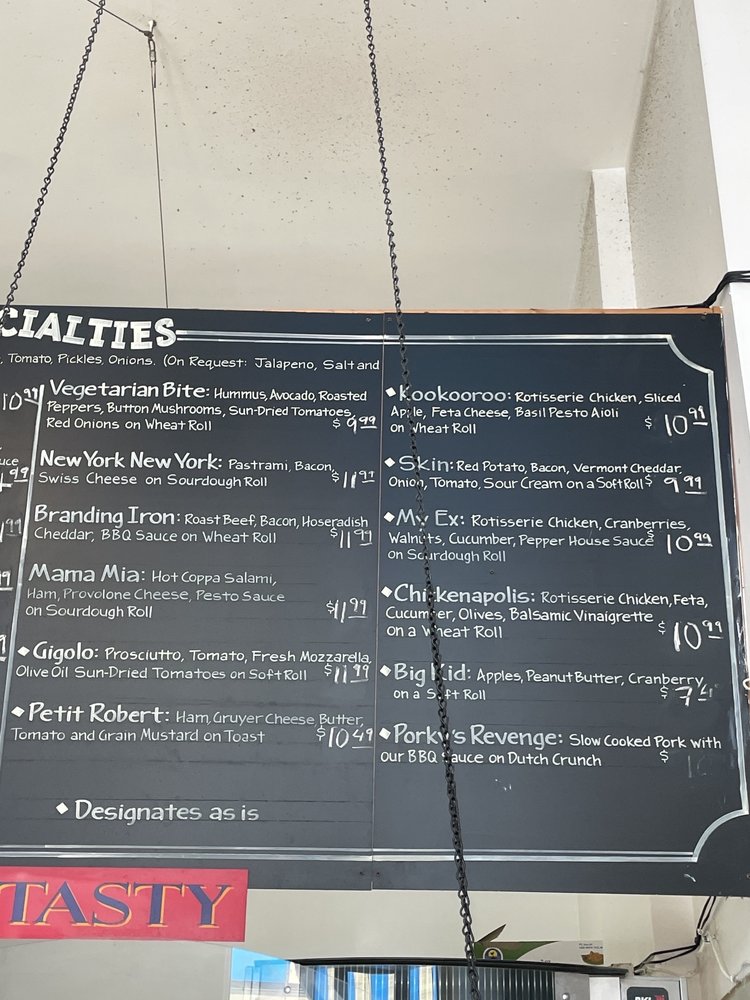 CIALTIES
, Tomato, Pickles, Onions. (On Request: Jalapeno, Salt and
10.99
Vegetarian Bite: Hummus, Avocado, Roasted
Peppers, Button Mushrooms, Sun-Dried Tomatoes,
Red Onions on Wheat Roll $ 9.99
New York New York: Pastrami, Bacon,
Swiss Cheese on Sourdough Roll $11.99
Branding Iron: Roast Beef, Bacon, Hoseradish
Cheddar, BBQ Sauce on Wheat Roll $11.99
Mama Mia: Hot Coppa Salami,
Ham, Provolone Cheese, Pesto Sauce
on Sourdough Roll $11.99
◆ Gigolo: Prosciutto, Tomato, Fresh Mozzarella,
Olive Oil Sun-Dried Tomatoes on Soft Roll $11.99
◆ Petit Robert: Ham, Gruyer Cheese Butter,
Tomato and Grain Mustard on Toast $10.49
◆ Designates as is
◆ Kookooroo: Rotisserie Chicken, Sliced
Apple, Feta Cheese, Basil Pesto Aioli
on Wheat Roll $ 10.99
◆ Skin: Red Potato, Bacon, Vermont Cheddar,
Onion, Tomato, Sour Cream on a Soft Roll $ 9.99
◆ My Ex: Rotisserie Chicken, Cranberries,
Walnuts, Cucumber, Pepper House Sauce $ 10.99
on Sourdough Roll
◆ Chickenapolis: Rotisserie Chicken, Feta,
Cucumber, Olives, Balsamic Vinaigrette
on a Wheat Roll $ 10.99
◆ Big Kid: Apples, Peanut Butter, Cranberry,
on a Soft Roll $
◆ Porky's Revenge: Slow Cooked Pork with
our BBQ Sauce on Dutch Crunch $
TASTY